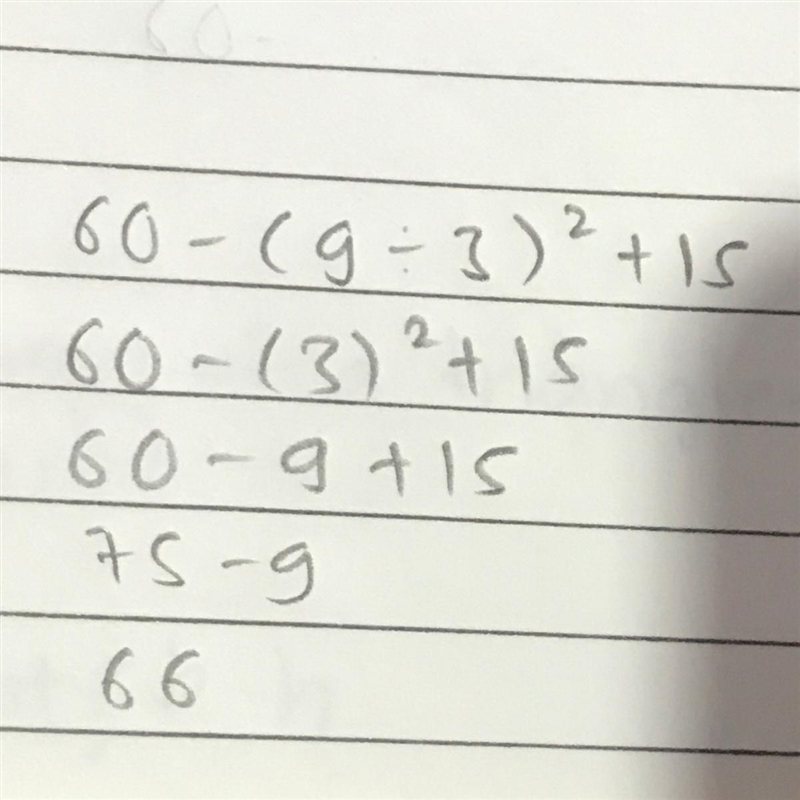 60 - (9 ÷ 3)² + 15
60 - (3)² + 15
60 - 9 + 15
75 - 9
66